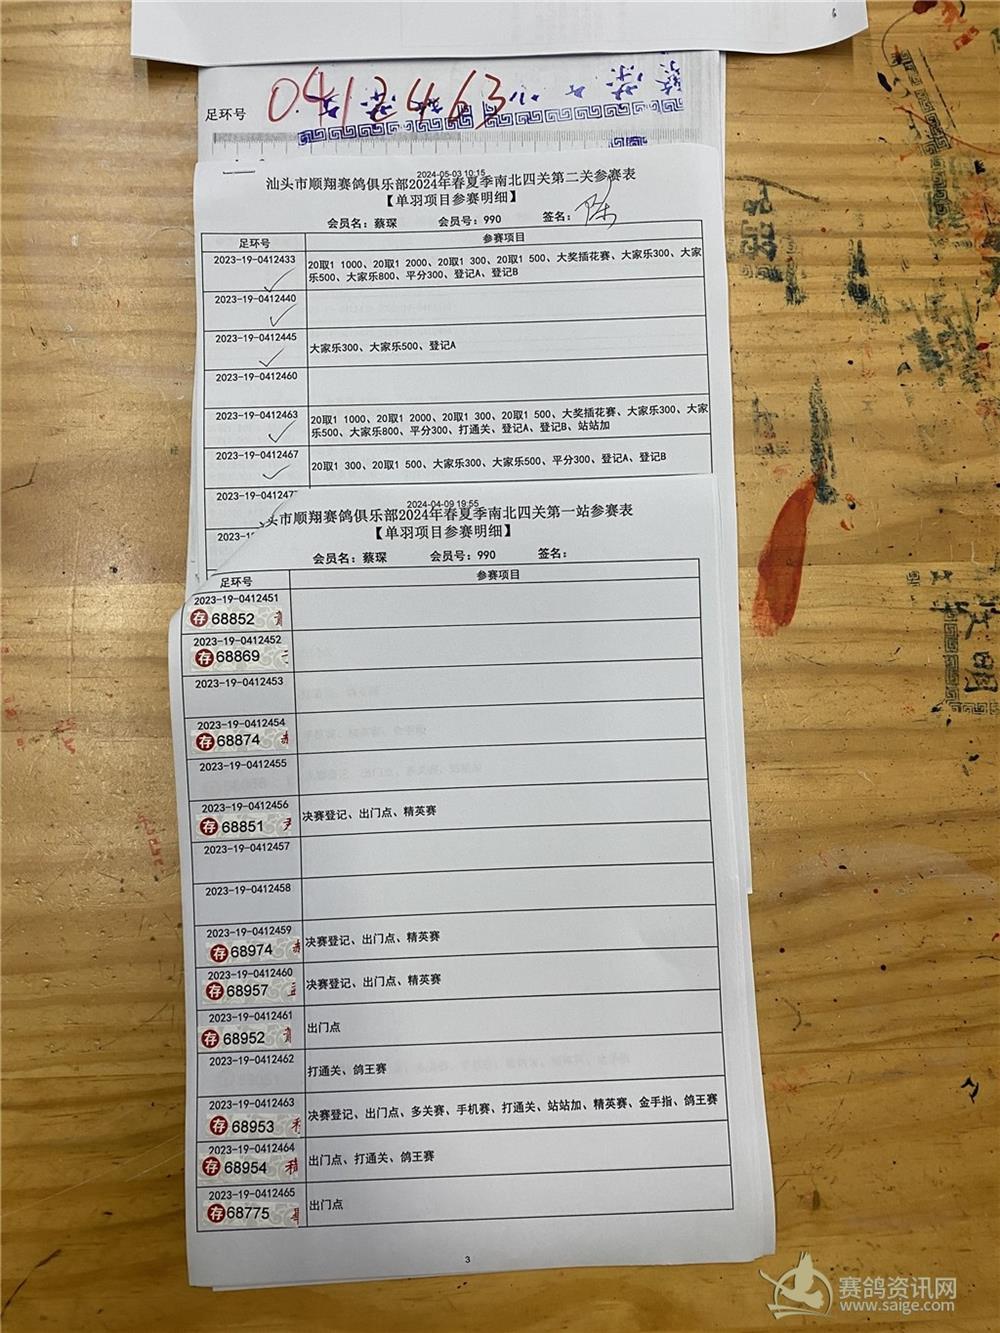 6
足环号 0412463
2024-05-03 10:15
汕头市顺翔赛鸽俱乐部2024年春夏季南北四关第二关参赛表
【单羽项目参赛明细】
会员名：蔡琛 会员号：990 签名：陈
足环号 参赛项目
2023-19-0412433 20取1 1000、20取1 2000、20取1 300、20取1 500、大奖插花赛、大家乐300、大家
乐500、大家乐800、平分300、登记A、登记B
2023-19-0412440
2023-19-0412445 大家乐300、大家乐500、登记A
2023-19-0412460
2023-19-0412463 20取1 1000、20取1 2000、20取1 300、20取1 500、大奖插花赛、大家乐300、大家
乐500、大家乐800、平分300、打通关、登记A、登记B、站站加
2023-19-0412467 20取1 300、20取1 500、大家乐300、大家乐500、平分300、登记A、登记B
2023-19-041247
2023-1
2024-04-09 19:55
头市顺翔赛鸽俱乐部2024年春夏季南北四关第一站参赛表
【单羽项目参赛明细】
会员名：蔡琛 会员号：990 签名：
足环号 参赛项目
2023-19-0412451
存 68852
2023-19-0412452
存 68869
2023-19-0412453
2023-19-0412454
存 68874
2023-19-0412455
2023-19-0412456
存 68851 决赛登记、出门点、精英赛
2023-19-0412457
2023-19-0412458
2023-19-0412459
存 68974 决赛登记、出门点、精英赛
2023-19-0412460
存 68957 决赛登记、出门点、精英赛
2023-19-0412461
存 68952 出门点
2023-19-0412462 打通关、鸽王赛
2023-19-0412463
存 68953 决赛登记、出门点、多关赛、手机赛、打通关、站站加、精英赛、金手指、鸽王赛
2023-19-0412464
存 68954 出门点、打通关、鸽王赛
2023-19-0412465
存 68775 出门点
3
赛鸽资讯网
www.saige.com